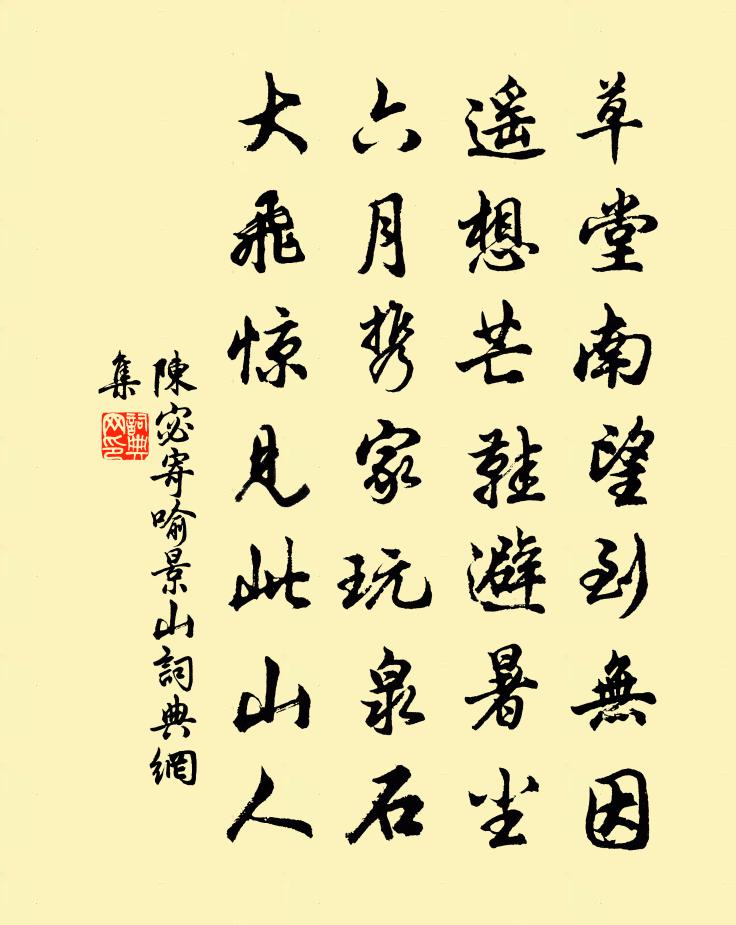 草堂南望到無因
遥想芒鞋避暑尘
六月携家玩泉石
大飛惊見此山人
陳宓寄喻景山詞典網
集
詞典
网印